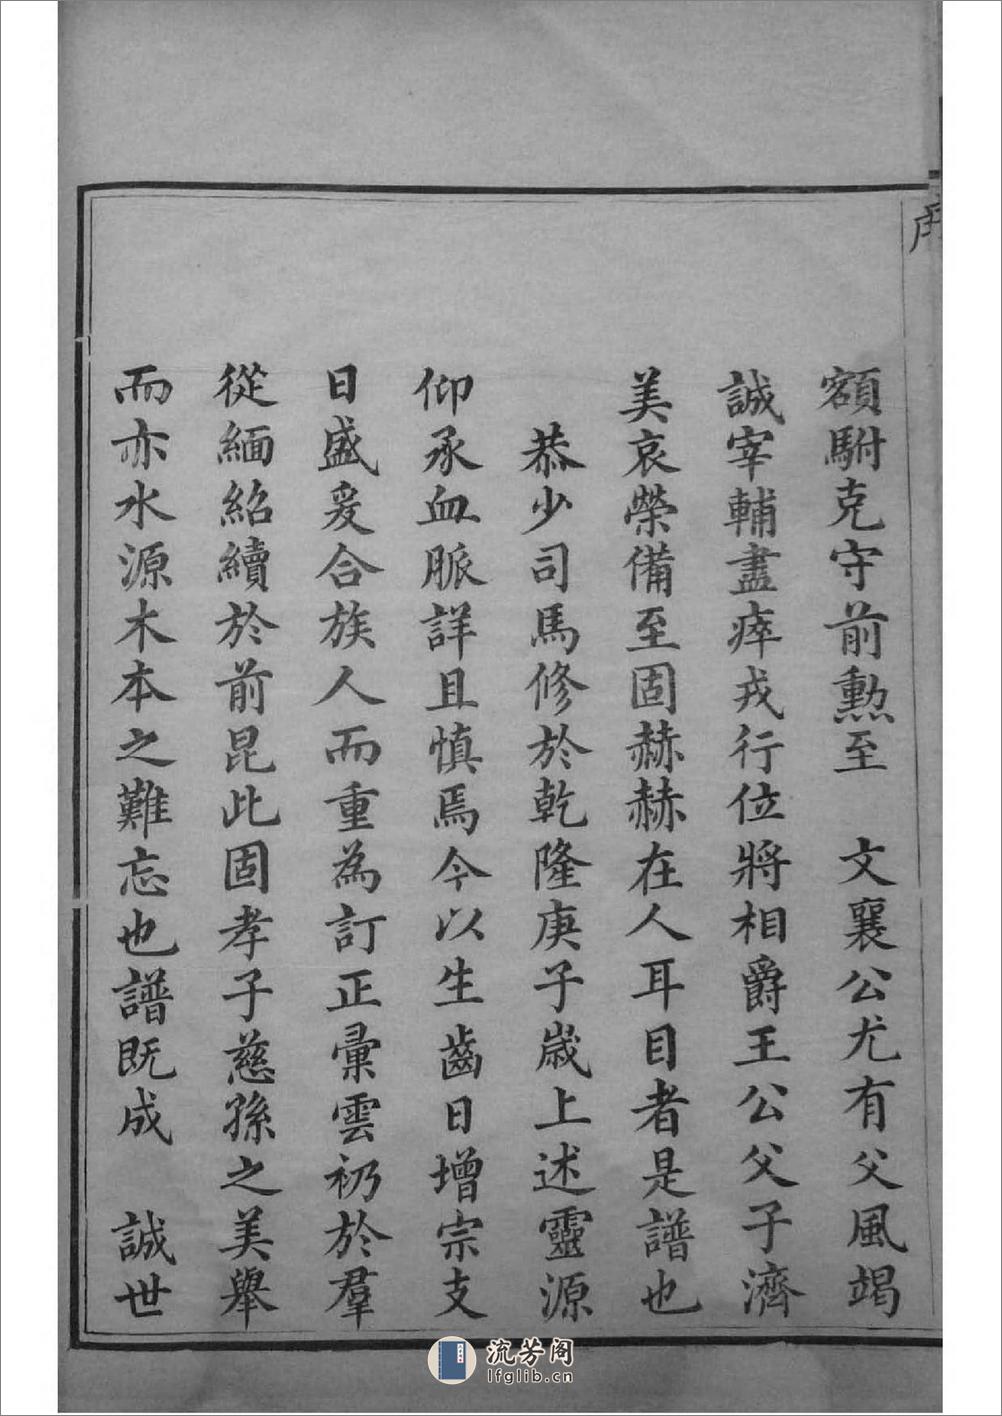 序
額駙克守前勳至　文襄公尤有父風竭
誠宰輔盡瘁戎行位將相爵王公父子濟
美哀榮備至固赫赫在人耳目者是譜也
恭少司馬修於乾隆庚子歲上述靈源
仰承血脈詳且慎焉今以生齒日增宗支
日盛爰合族人而重為訂正彙雲礽於羣
從緬紹續於前昆此固孝子慈孫之美舉
而亦水源木本之難忘也譜既成　誠世
流芳阁
lfglib.cn